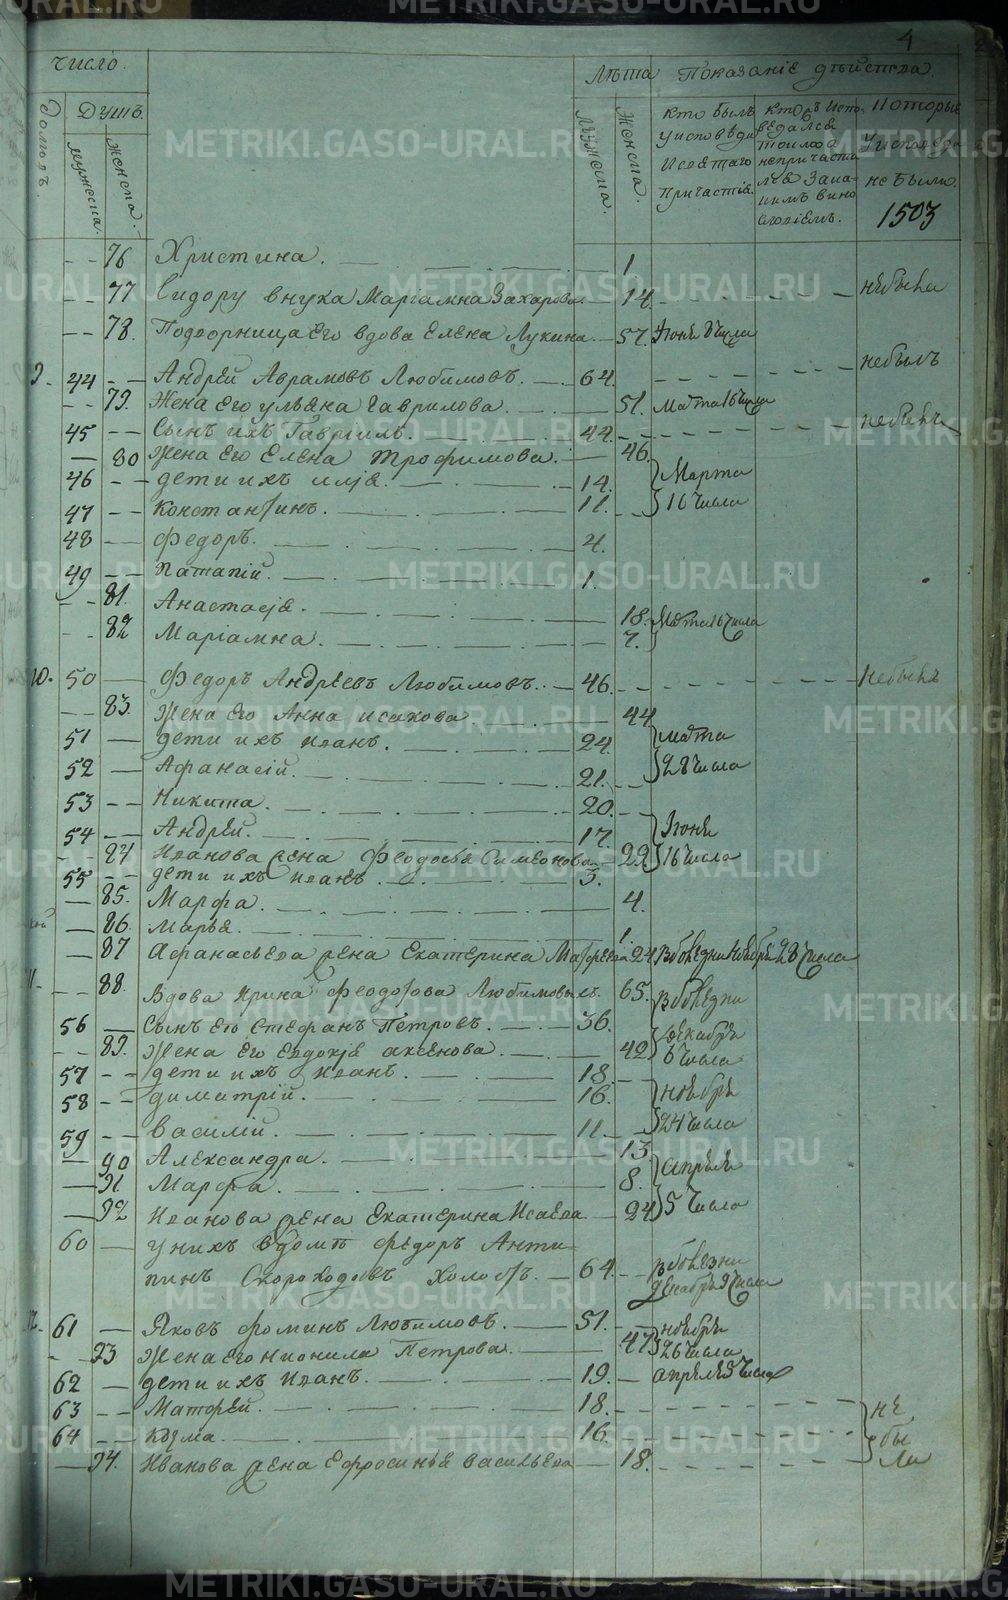 4
Число.
Лѣта Показаніе дѣйства
Домовъ.
Душъ.
мужеска.
женска.
Мужеска.
Женска.
Кто былъ у исповѣди и святаго причастія.
Кто исповѣдался токмо а непричастился
Которые у исповѣди не были.
1503
76 Христина. 1
77 Сидору внука Маріамна Захарова 14. небыла
78. Подворница его вдова Елена Лукина. 57. Іюня числа
9. 44 Андрей Аврамовъ Любимовъ. 64. небылъ
79. Жена его Ульяна Гаврилова. 51. Марта 16 числа
45 Сынъ ихъ Гавріилъ. 44. небылъ
80 Жена его Елена Трофимова. 46.
46 дети ихъ Илія. 14. Марта
47 Константинъ. 11. 16 числа
48 Федоръ. 4.
49 Патапій. 1.
81. Анастасія. 18. Марта 16 числа
82 Маріамна. 7.
10. 50 Федоръ Андреевъ Любимовъ. 46. небылъ
83. Жена его Анна Исакова. 44
51 дети ихъ Иванъ. 24. Марта
52 Афанасій. 21. 28 числа
53 Никита. 20.
54 Андрей. 17. Іюня
84 Иванова жена Феодосья Симеонова. 22. 16 числа
55 дети ихъ Иванъ. 3.
85. Марфа. 4.
86. Марья. 1
87 Афанасьева жена Екатерина Матфеева 24 в болезни Ноября 28 числа
88. Вдова Ирина Феодотова Любимовыхъ. 65. в болезни
56 Сынъ ею Стефанъ Петровъ. 36. декабря
89. Жена его Евдокія Аксенова. 42 6 числа
57 дети ихъ Иванъ. 18
58 Димитрій. 16. ноября
59 Василій. 11. 24 числа
90 Александра. 13
91. Марфа. 8. апреля
92 Иванова жена Екатерина Исаева 24 5 числа
60 у нихъ в доме Федоръ Анти-
пинъ Скороходовъ холостъ. 64. в болезни
декабря 9 числа
12. 61 Яковъ Фоминъ Любимовъ. 51. ноября
93 Жена его Нионила Петрова. 47 26 числа
62 дети ихъ Иванъ. 19. апреля 5 числа
63 Матфей. 18. не
64 Козма. 16. бы
94. Иванова жена Ефросинья Васильева 18. ли
METRIKI.GASO-URAL.RU